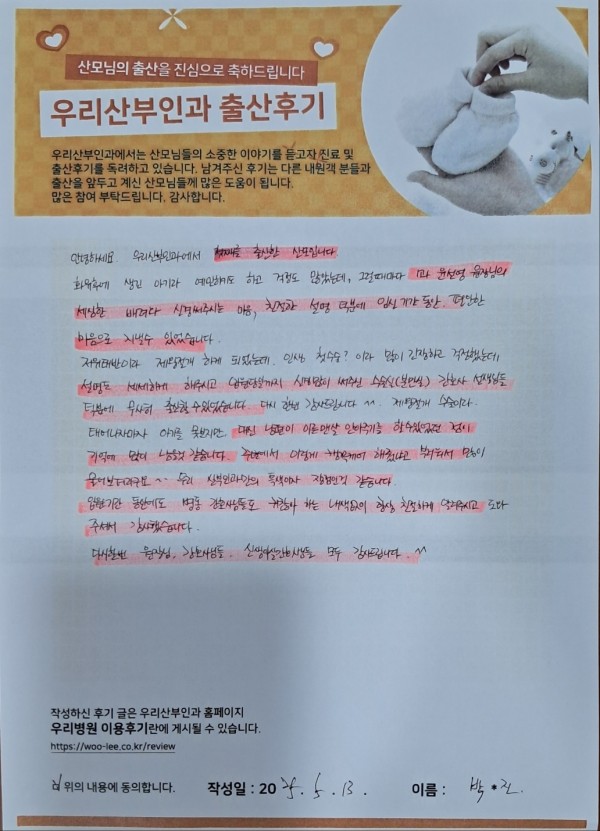 산모님의 출산을 진심으로 축하드립니다
우리산부인과 출산후기
우리산부인과에서는 산모님들의 소중한 이야기를 듣고자 진료 및
출산후기를 독려하고 있습니다. 남겨주신 후기는 다른 내원객 분들과
출산을 앞두고 계신 산모님들께 많은 도움이 됩니다.
많은 참여 부탁드립니다, 감사합니다.
안녕하세요. 우리산부인과에서 첫째를 출산한 산모입니다
생긴 아기라 예민하기도 하고 걱정도 많았는데, 그럴때마다 1과 윤선영 원장님의
세심한 배려와 신경써주시는 마음, 친절한 설명 덕분에 임신기간 동안 편안한
마음으로 지낼수 있었습니다.
제왕절개 하게 되었는데. 인생 첫수술? 이라 많이 긴장하고 걱정했는데
설명도 세세하게 해주시고 신경많이 써주신 수술실(분만실) 간호사 선생님들
덕분에 무사히 출산할수있었습니다. 다시 한번 감사드립니다 ^^. 제왕절개 수술이라.
태어나자마자 아기를 못봤지만, 대신 남편이 할수있었던 점이
기억에 많이 남을것 같습니다. 주변에서 이렇게 해줬냐고 부러워서 많이
물어보더라구요~ 우리 산부인과만의 특색이자 장점인것 같습니다.
입원기간 동안에도 병동 간호사님들도 귀찮아 하는 내색없이 항상 친절하게 알려주시고 도와
주셔서 감사했습니다.
다시한번 원장님, 간호사님들, 신생아실간호사님들 모두 감사드립니다. ^^
작성하신 후기 글은 우리산부인과 홈페이지
우리병원 이용후기란에 게시될 수 있습니다.
https://woo-lee.co.kr/review
위의 내용에 동의합니다. 작성일 : 2025. 5. 13. 이름 : 박*진